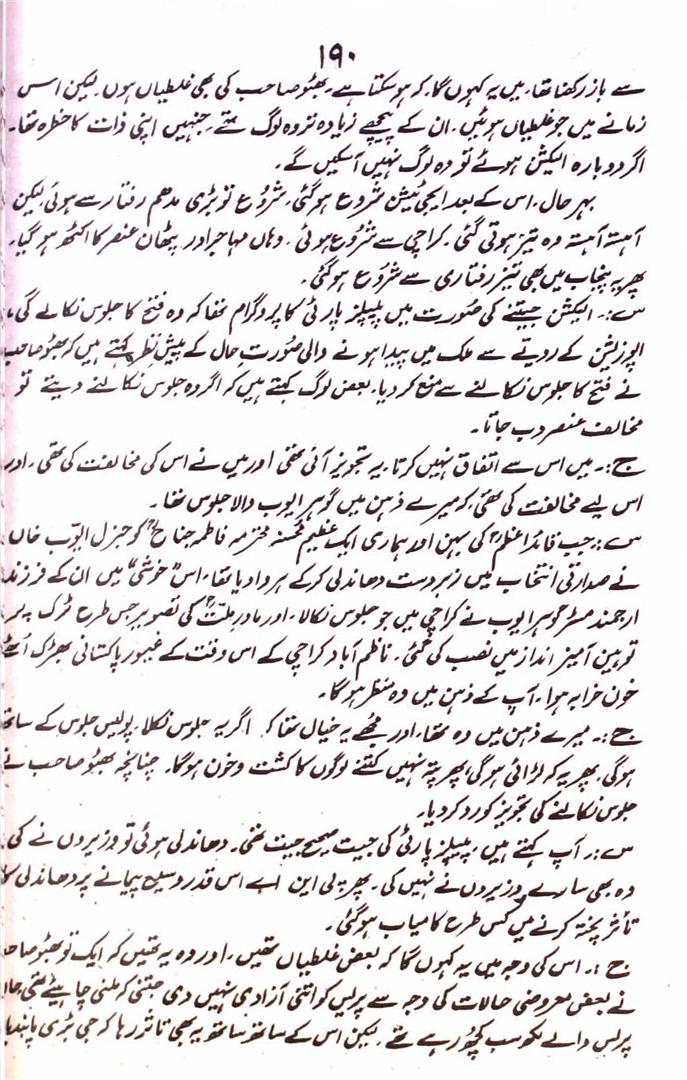 ۱۹۰
سے باز رکھنا تھا۔ میں یہ کہوں گا۔ کہ ہو سکتا ہے۔ بھٹو صاحب کی بھی غلطیاں ہوں۔ لیکن اس
زمانے میں جو غلطیاں ہوئیں۔ ان کے پیچھے زیادہ تر وہ لوگ تھے۔ جنہیں اپنی ذات کا خطرہ تھا۔
اگر دوبارہ الیکشن ہوئے تو وہ لوگ نہیں آسکیں گے۔
بہر حال۔ اس کے بعد ایجی ٹیشن شروع ہو گئی۔ شروع تو بڑی مدھم رفتار سے ہوئی لیکن
آہستہ آہستہ وہ تیز ہوتی گئی۔ کراچی سے شروع ہوئی۔ وہاں مہاجر اور پٹھان عنصر کا اکٹھ ہو گیا۔
پھر یہ پنجاب میں بھی تیز رفتاری سے شروع ہو گئی۔
س:۔ الیکشن جیتنے کی صورت میں پیپلز پارٹی کا پروگرام تھا کہ وہ فتح کا جلوس نکالے گی،
اپوزیشن کے رویے سے ملک میں پیدا ہونے والی صورت حال کے پیش نظر کہتے ہیں کہ بھٹو صاحب
نے فتح کا جلوس نکالنے سے منع کر دیا۔ بعض لوگ کہتے ہیں کہ اگر وہ جلوس نکالنے دیتے تو
مخالف عنصر دب جاتا۔
ج:۔ میں اس سے اتفاق نہیں کرتا۔ یہ تجویز آئی تھی اور میں نے اس کی مخالفت کی تھی۔ اور
اس لیے مخالفت کی تھی۔ کہ میرے ذہن میں گوہر ایوب والا جلوس تھا۔
س:۔ جب قائد اعظمؒ کی بہن اور ہماری ایک عظیم محسنہ محترمہ فاطمہ جناحؒ کو جنرل ایوب خاں
نے صدارتی انتخاب میں زبردست دھاندلی کر کے ہروا دیا تھا۔ اس "خوشی" میں ان کے فرزند
ارجمند مسٹر گوہر ایوب نے کراچی میں جو جلوس نکالا۔ اور مادر ملتؒ کی تصویر جس طرح ٹرک پر
توہین آمیز انداز میں نصب کی گئی۔ ناظم آباد کراچی کے اس وقت کے غیور پاکستانی بھڑک اٹھے
خون خرابہ ہوا۔ آپ کے ذہن میں وہ منظر ہو گا۔
ج:۔ میرے ذہن میں وہ تھا۔ اور مجھے یہ خیال تھا کہ اگر یہ جلوس نکلا۔ پولیس جلوس کے ساتھ
ہو گی۔ پھر یہ کہ لڑائی ہو گی، پھر پتہ نہیں کتنے لوگوں کا کشت و خون ہو گا۔ چنانچہ بھٹو صاحب نے
جلوس نکالنے کی تجویز کو رد کر دیا۔
س:۔ آپ کہتے ہیں۔ پیپلز پارٹی کی جیت صحیح جیت تھی۔ دھاندلی ہوئی تو وزیروں نے کی۔
وہ بھی سارے وزیروں نے نہیں کی۔ پھر پی این اے اس قدر وسیع پیمانے پر دھاندلی کا
تأثر پختہ کرنے میں کس طرح کامیاب ہو گئی۔
ج:۔ اس کی وجہ میں یہ کہوں گا کہ بعض غلطیاں تھیں۔ اور وہ یہ تھیں کہ ایک تو بھٹو صاحب
نے بعض معروضی حالات کی وجہ سے پریس کو اتنی آزادی نہیں دی جتنی کہ ملنی چاہیئے تھی،
پریس والے لکھ سب کچھ رہے تھے۔ لیکن اس کے ساتھ ساتھ یہ بھی تاثر رہا کہ جی بڑی